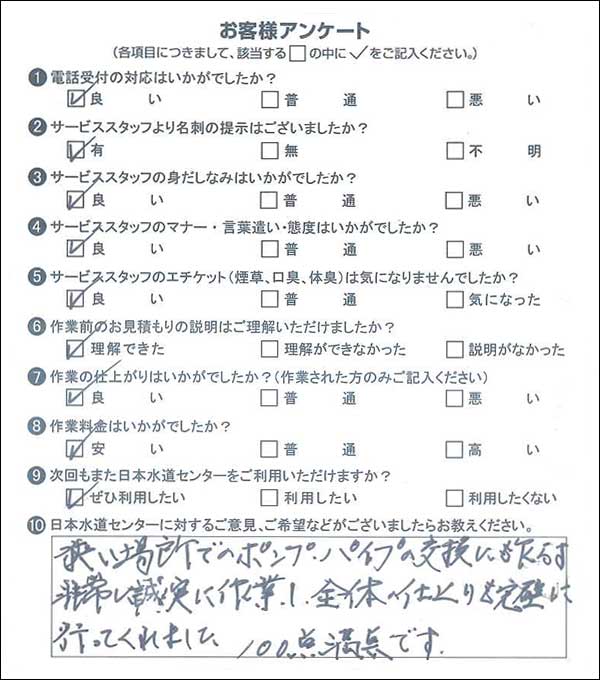 お客様アンケート
(各項目につきまして、該当する□の中に✓をご記入ください。)
1 電話受付の対応はいかがでしたか?
良い 普通 悪い
2 サービススタッフより名刺の提示はございましたか?
有 無 不明
3 サービススタッフの身だしなみはいかがでしたか?
良い 普通 悪い
4 サービススタッフのマナー・言葉遣い・態度はいかがでしたか?
良い 普通 悪い
5 サービススタッフのエチケット(煙草、口臭、体臭)は気になりませんでしたか?
良い 普通 気になった
6 作業前のお見積もりの説明はご理解いただけましたか?
理解できた 理解ができなかった 説明がなかった
7 作業の仕上がりはいかがでしたか?(作業された方のみご記入ください)
良い 普通 悪い
8 作業料金はいかがでしたか?
安い 普通 高い
9 次回もまた日本水道センターをご利用いただけますか?
ぜひ利用したい 利用したい 利用したくない
10 日本水道センターに対するご意見、ご希望などがございましたらお教えください。
狭い場所でのポンプ・パイプの交換にも拘らず
非常に誠実に作業し、全体の仕上りも完璧に
行ってくれました。100点満点です。